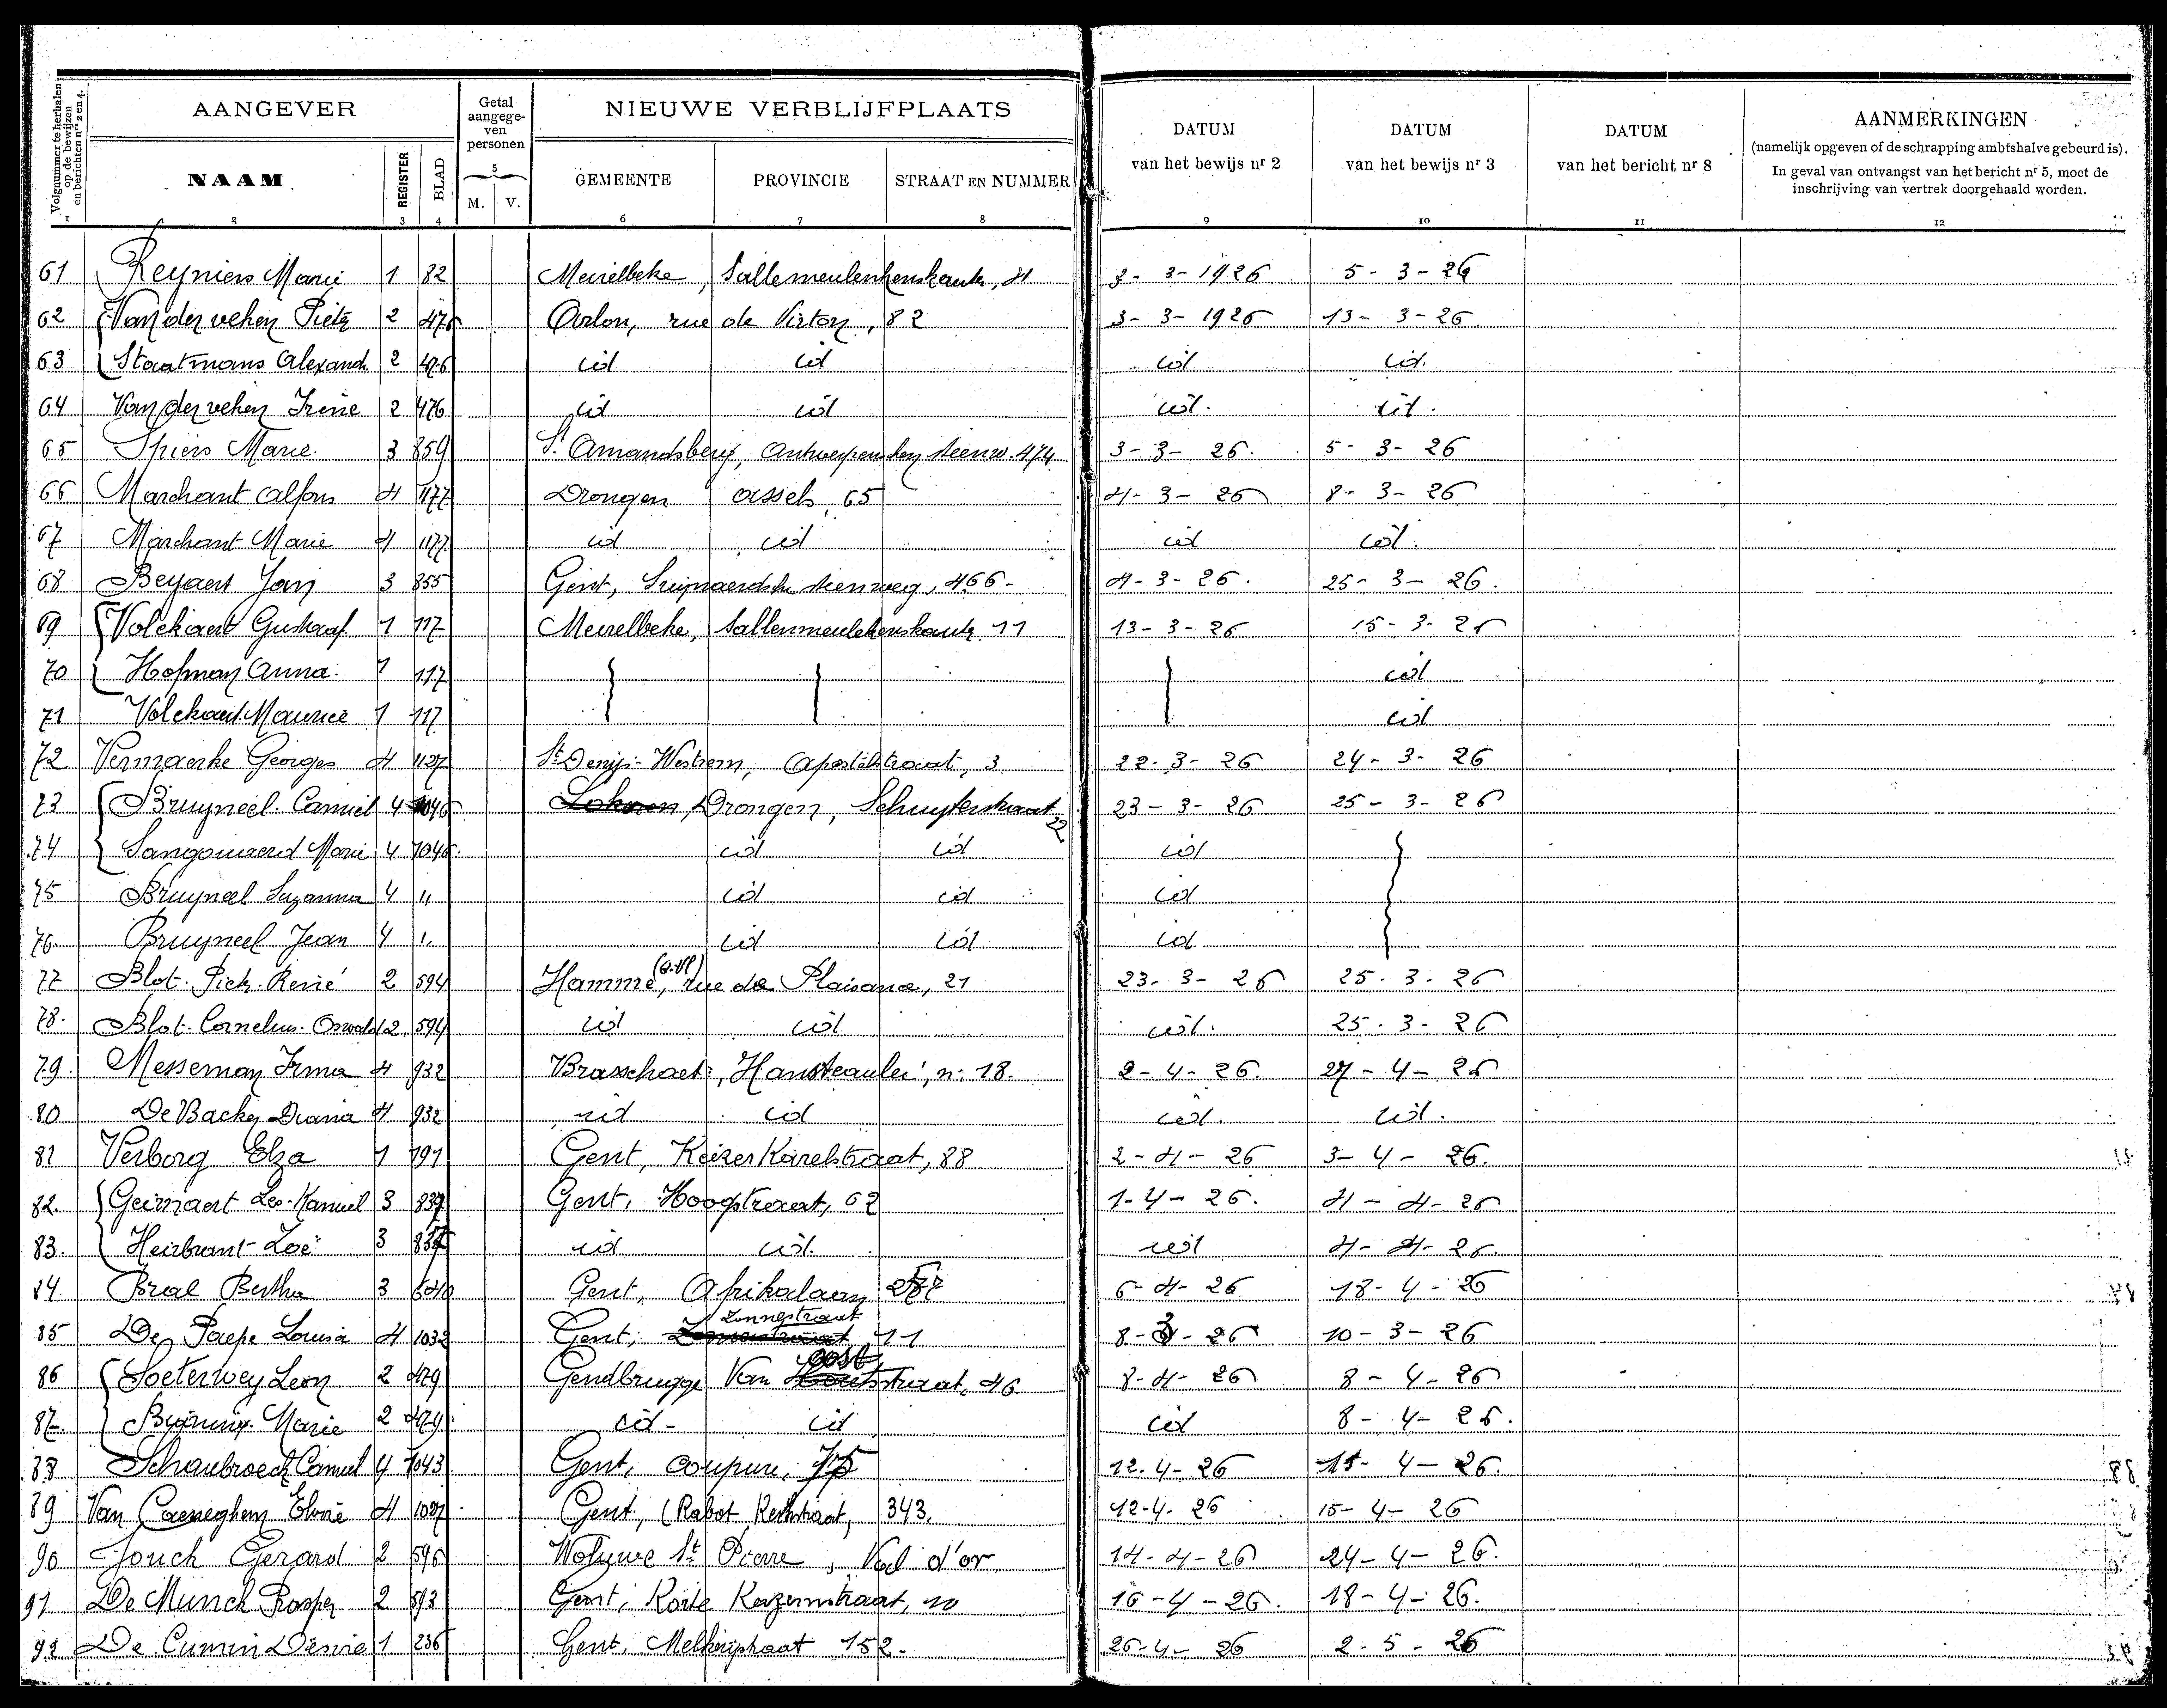 Volgnummer te herhalen op de bewijzen en berichten nrs 2 en 4.
AANGEVER
Getal aangege-ven personen
NIEUWE VERBLIJFPLAATS
DATUM van het bewijs nr 2
DATUM van het bewijs nr 3
DATUM van het bericht nr 8
AANMERKINGEN
(namelijk opgeven of de schrapping ambtshalve gebeurd is).
In geval van ontvangst van het bericht nr 5, moet de
inschrijving van vertrek doorgehaald worden.
NAAM REGISTER BLAD M. V. GEMEENTE PROVINCIE STRAAT EN NUMMER
1 2 3 4 5 6 7 8 9 10 11 12
61 Reyniers Marie 1 82 Meirelbeke, 3-3-1926 5-3-26
62 Van der veken Pieter 2 476 Arlon, rue de Virton, 82 3-3-1926 13-3-26
63 Staatmans Alexand. 2 476 id id id id.
64 Van der veken Irene 2 476 id id id. id.
65 Spiers Marie. 3 859 St Amandsberg, Antwerpschen steenw. 474 3-3-26. 5-3-26
66 Marchant Alfons 4 1177 Drongen Assels, 65 4-3-26 8-3-26
67 Marchant Marie 4 1177 id id id id.
68 Beyaert Jan 3 855 Gent, steenweg, 466- 4-3-26. 25-3-26.
69 Volckaert Gustaaf 1 117 Meirelbeke, 11 13-3-26 15-3-26
70 Hofman Anna. 1 117 id
71 Volckaert Maurice 1 117 id
72 Vermaerke Georges 4 1127 St Denijs-Westrem, Apostelstraat, 3 22-3-26 24-3-26
73 Bruyneel Camiel 4 1046 Lokeren, Drongen, Schuyterstraat 22 23-3-26 25-3-26
74 Marie 4 1046 id id id
75 Bruyneel Suzanna 4 " id id id
76. Bruyneel Jean 4 " id id id
77 Blot Piet. René 2 594 Hamme (O.Vl), rue de Plaisance, 21 23-3-26 25-3-26
78. Blot. Cornelius. Oswald 2 594 id id id. 25-3-26
79. Messeman Irma 4 932 Brasschaet, n: 18. 2-4-26. 27-4-26
80 De Backer Diana 4 932 id id id. id.
81 Verborg Elza 1 191 Gent, Keizer Karelstraat, 88 2-4-26 3-4-26.
82. Geirnaert Leo-Kamiel 3 837 Gent, Hoogstraat, 62 1-4-26. 4-4-26
83. Heirbrant Zoë 3 837 id id. id 4-4-26.
84. Bral Bertha 3 640 Gent, Afrikalaan 287 6-4-26 18-4-26
85 De Paepe Louisa 4 1032 Gent, Zonnestraat 11 8-3-26 10-3-26
86 Soeterwey Leon 2 479 Gendbrugge Van oost straat, 46 8-4-26 8-4-26
87. Marie 2 479 id- id id 8-4-26.
88 Schaubroeck Camiel 4 1043 Gent, coupure, 75 12-4-26 15-4-26.
89 Van Caeneghem Elvire 4 1027 Gent, (Rabot, Kerkstraat, 343, 12-4-26 15-4-26
90 Jouck Gerard 2 596 Woluwe St Pierre, Val d'or 14-4-26 24-4-26.
91 De Munck Prosper 2 593 Gent, Korte Kazernstraat, 10 16-4-26. 18-4-26.
92 De Cumin Désiré 1 236 Gent, 152. 26-4-26 2-5-26